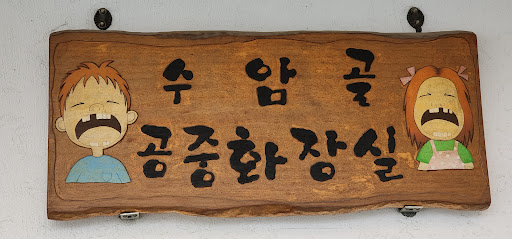 수암골
공중화장실